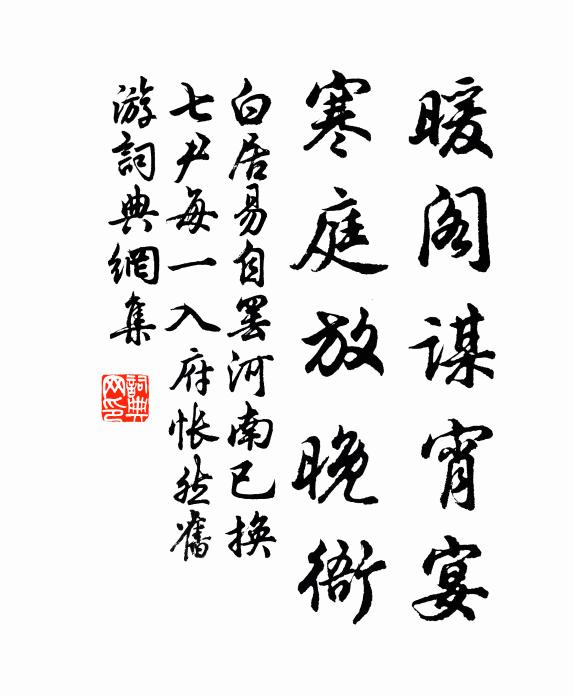 暖阁谋宵宴
寒庭放晚衙
白居易自罢河南已换
七尹每一入府怅然旧
游词典網集
词典网印